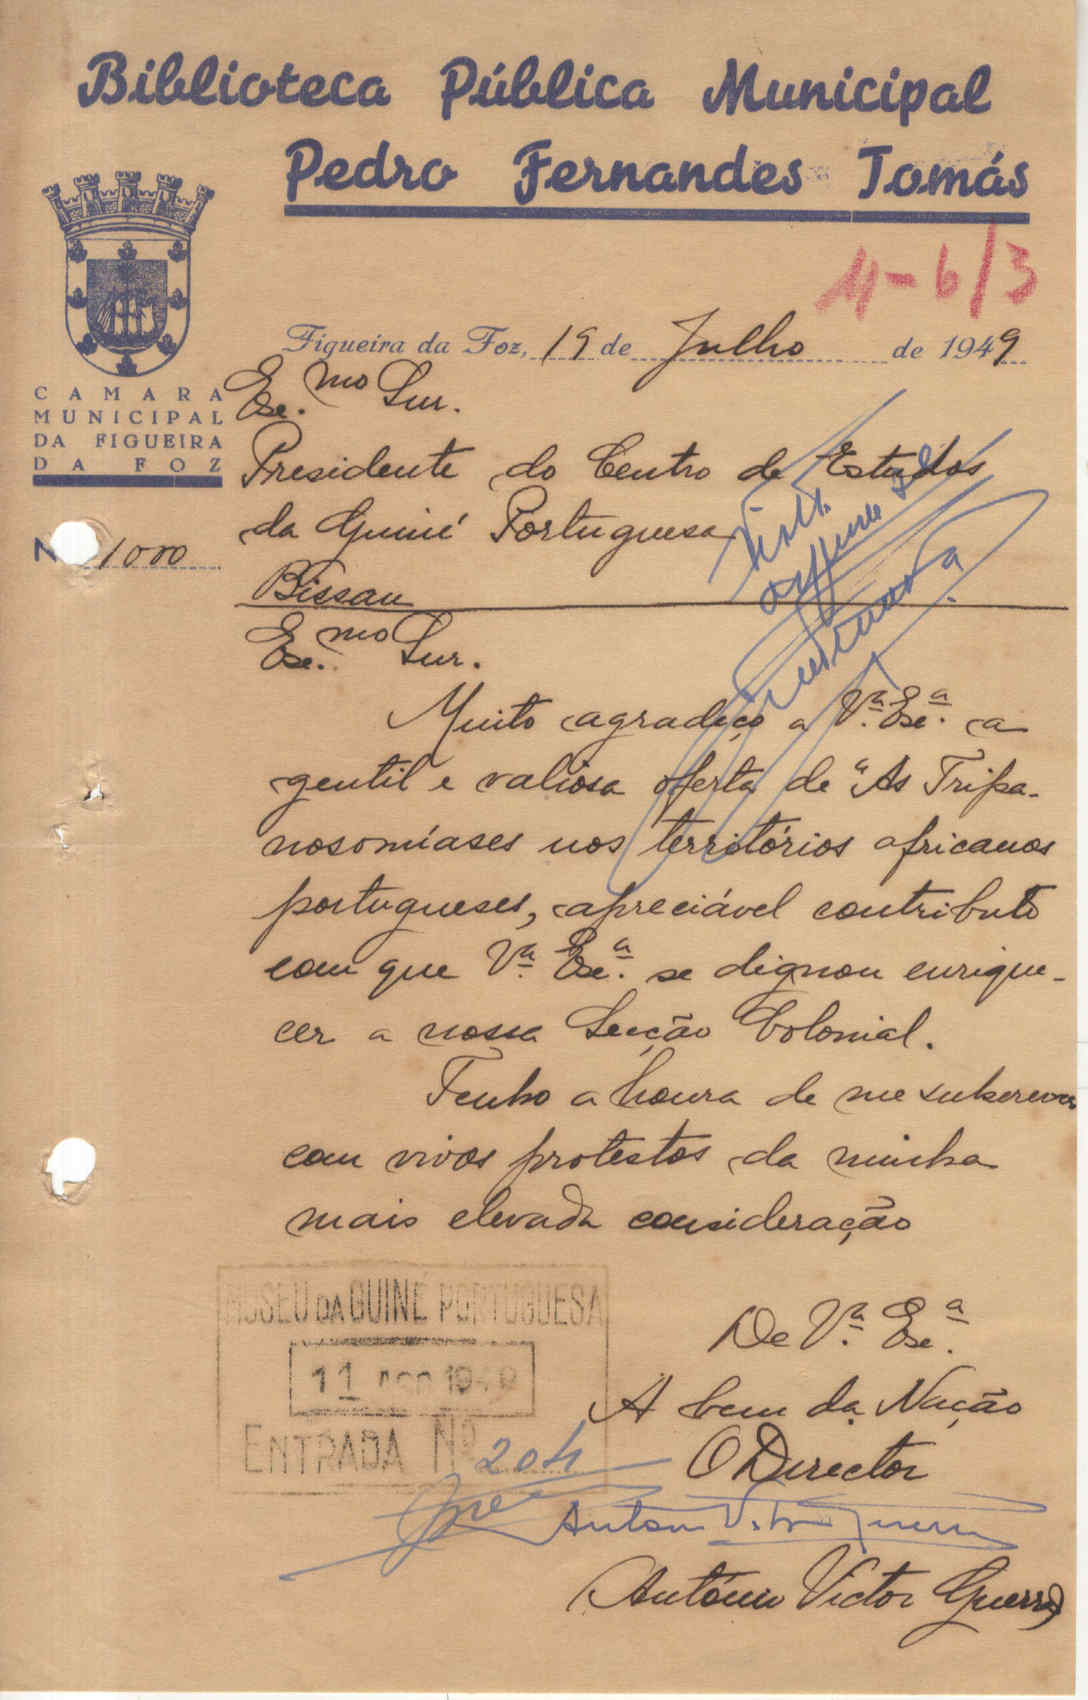 Biblioteca Pública Municipal
Pedro Fernandes Tomás
11-6/3
Figueira da Foz, 19 de Julho de 1949
CAMARA
MUNICIPAL
DA FIGUEIRA
DA FOZ
N 1000
Exc.mo Snr.
Presidente do Centro de Estudos
da Guiné Portuguesa
Bissau
Exc.mo Snr.
Muito agradeço a V.ª Exc.ª a
gentil e valiosa oferta de "As Tripa-
nosomíases nos territórios africanos
portugueses, apreciável contributo
com que V.ª Exc.ª se dignou enrique-
cer a nossa Secção Colonial.
Tenho a honra de me subscrever
com vivos protestos da minha
mais elevada consideração
De V.ª Exc.ª
A bem da Nação
O Director
António Victor Guerra
António Victor Guerra
MUSEU DA GUINÉ PORTUGUESA
11 AGO 1949
ENTRADA Nº 204